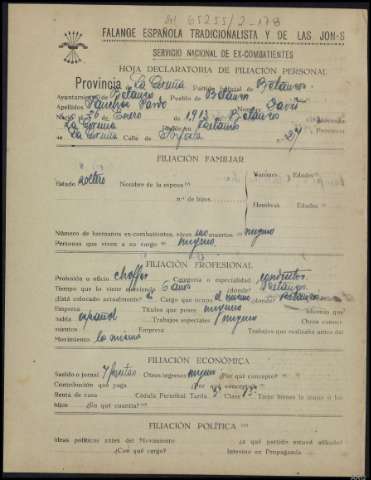 65255/2-178
FALANGE ESPAÑOLA TRADICIONALISTA Y DE LAS JON-S
SERVICIO NACIONAL DE EX-COMBATIENTES
HOJA DECLARATORIA DE FILIACIÓN PERSONAL
Provincia de La Coruña Partido judicial de Betanzos
Ayuntamiento de Betanzos Pueblo de Betanzos
Apellidos Sanchez Pardo Nombre
Nació el 26 Enero de 191 en Betanzos Provincia
La Coruña
de La Coruña Calle de
FILIACIÓN FAMILIAR
Estado soltero Nombre de la esposa Varones Edades
n.º de hijos
Hembras Edades
Número de hermanos ex-combatientes, vivos uno muertos ninguno
Personas que viven a su cargo ninguno
FILIACIÓN PROFESIONAL
Profesión u oficio chofer Categoría o especialidad conductor
Tiempo que lo viene ejerciendo 6 años ¿donde? Betanzos
¿Está colocado actualmente? si Cargo que ocupa el mismo ¿donde? Betanzos
Empresa Títulos que posee ninguno Idiomas que
habla español Trabajos especiales ninguno Otros conoci-
mientos Empresa Trabajos que realizaba antes del
Movimiento lo mismo
FILIACIÓN ECONÓMICA
Sueldo o jornal 7 pesetas Otros ingresos ninguno ¿Por qué concepto?
Contribución que paga ¿Por qué concepto?
Renta de casa Cédula Personal Tarifa 3ª Clase 13ª Tiene bienes la mujer o los
hijos ¿En qué cuantía?
FILIACIÓN POLÍTICA
Ideas políticas antes del Movimiento ¿a qué partido estuvo afiliado?
¿Con qué cargo? Intervino en Propaganda